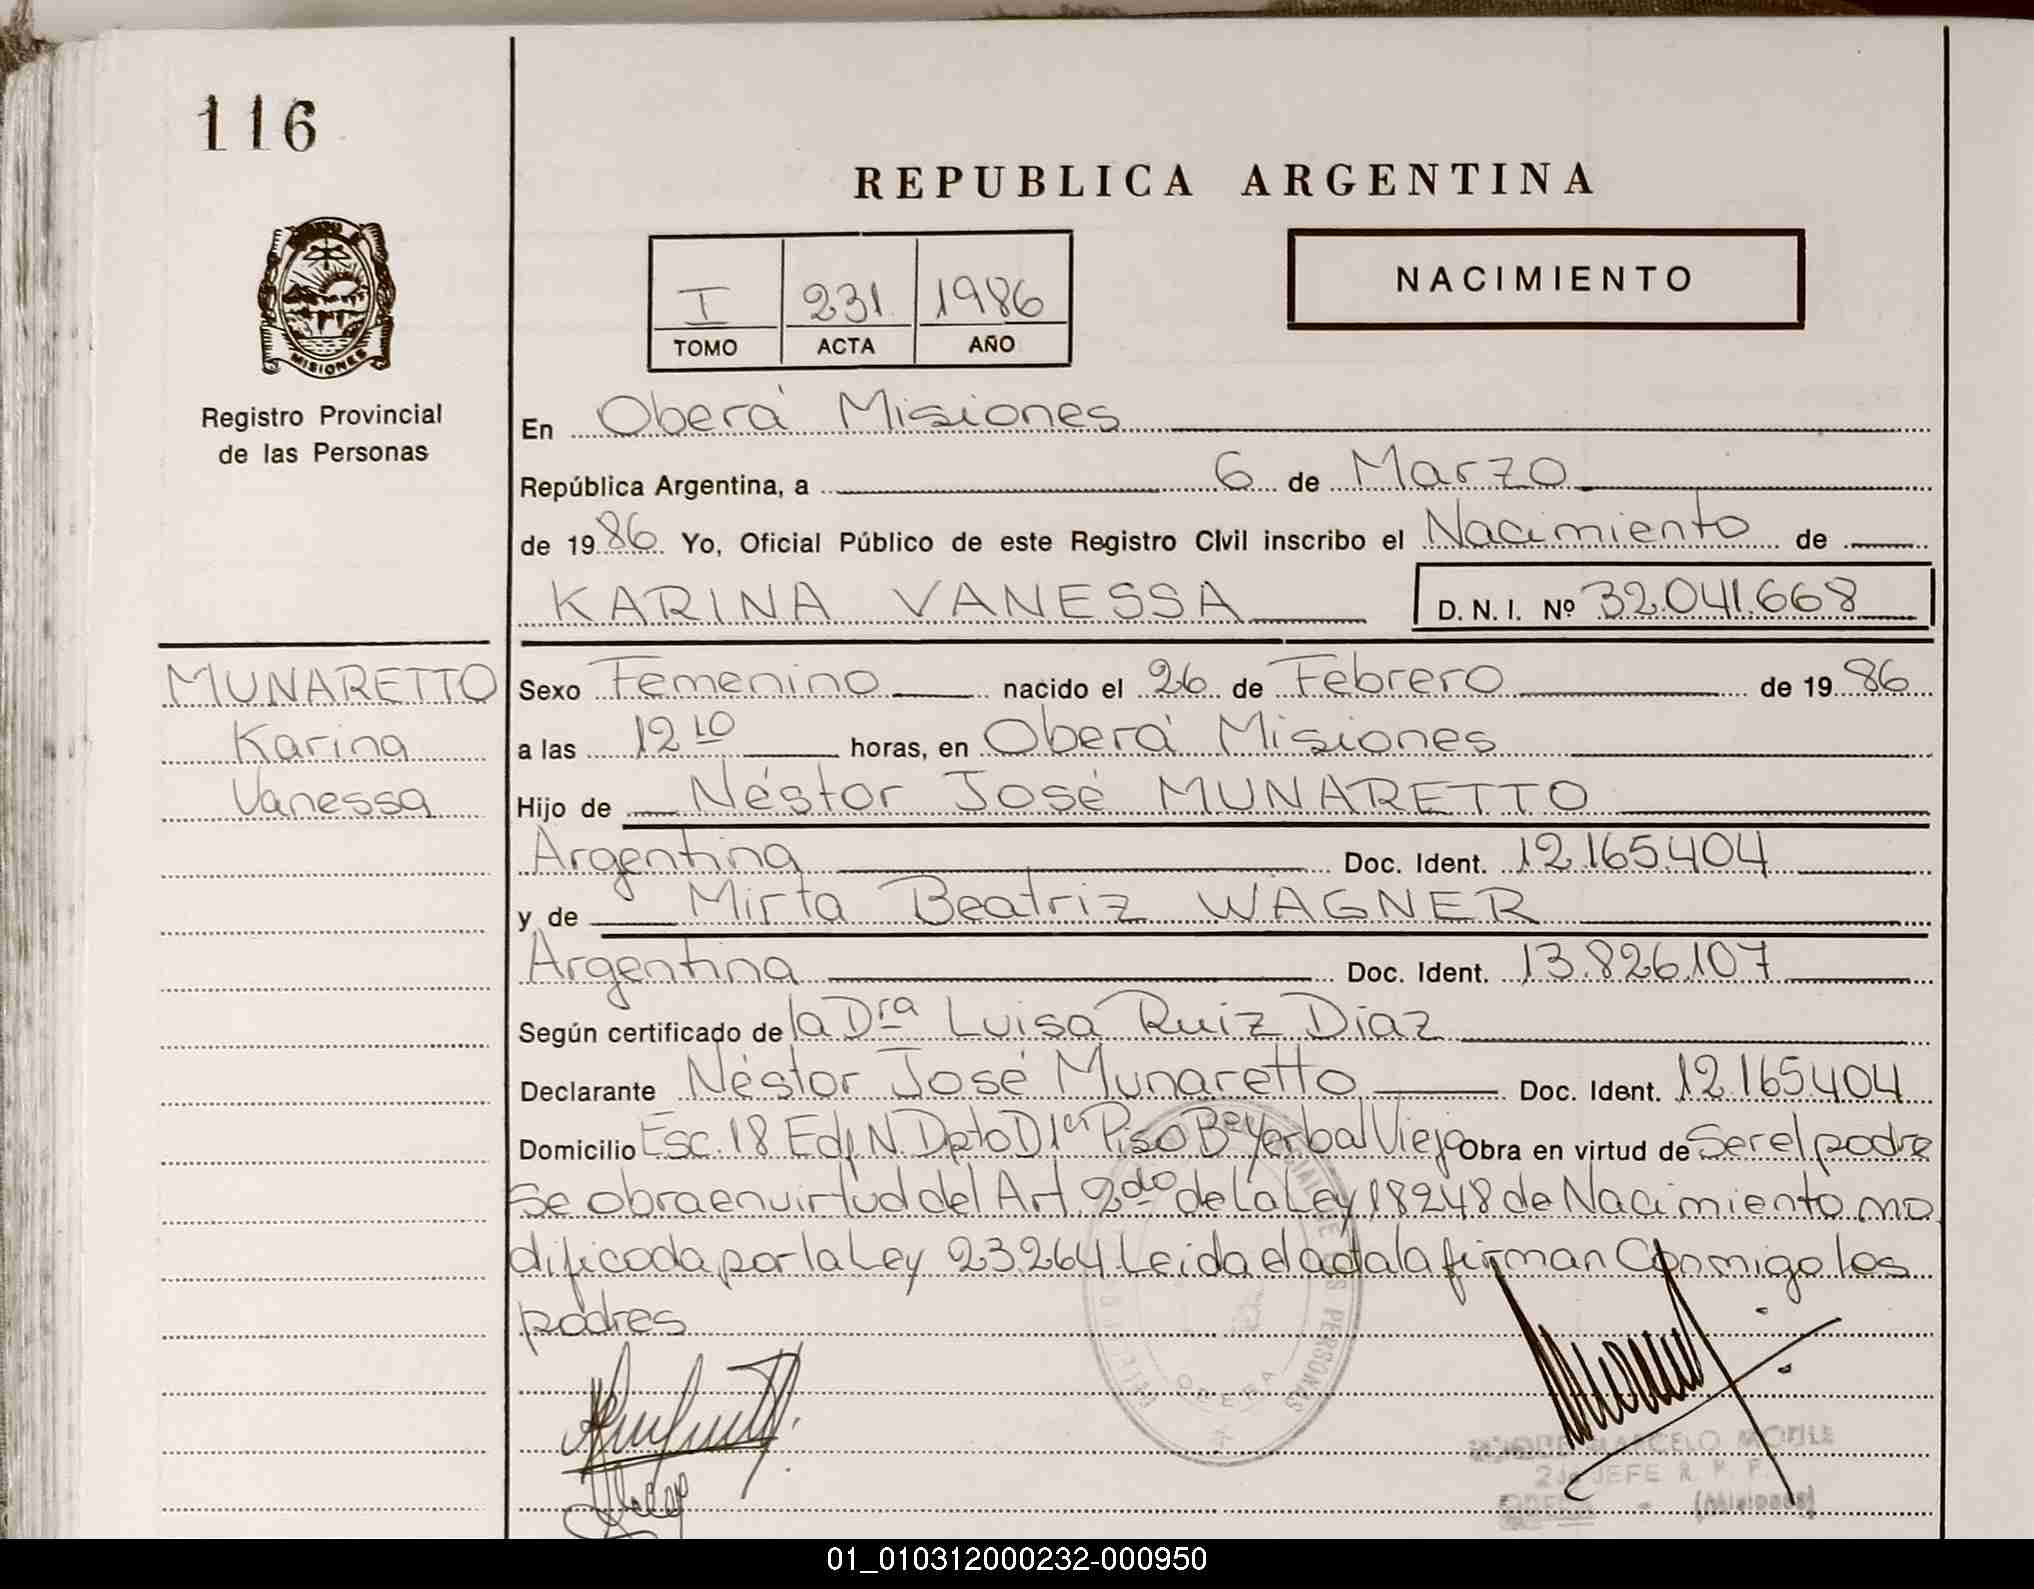 116
REPUBLICA ARGENTINA
NACIMIENTO
I 231 1986
TOMO ACTA AÑO
MISIONES
Registro Provincial
de las Personas
En Oberá Misiones
República Argentina, a 6 de Marzo
de 1986 Yo, Oficial Público de este Registro Civil inscribo el Nacimiento de
KARINA VANESSA D. N. I. Nº 32.041.668
MUNARETTO
Karina
Vanessa
Sexo Femenino nacido el 26 de Febrero de 1986
a las 12 10 horas, en Oberá Misiones
Hijo de Néstor José MUNARETTO
Argentina Doc. Ident. 12.165.404
y de Mirta Beatriz WAGNER
Argentina Doc. Ident. 13.826.107
Según certificado de la Dra Luisa Ruiz Diaz
Declarante Néstor José Munaretto Doc. Ident. 12.165.404
Domicilio Esc. 18 Edf N. Dpto D 1er Piso Be Yerbal Viejo Obra en virtud de Ser el padre
Se obra en virtud del Art. 2do de la Ley 18248 de Nacimiento mo
dificada por la Ley 23.264 Leida el acta la firman Conmigo los
padres
DE LAS PERSONAS
OBERA
MARCELO
2do JEFE R. P. P.
(Misiones)
01_010312000232-000950